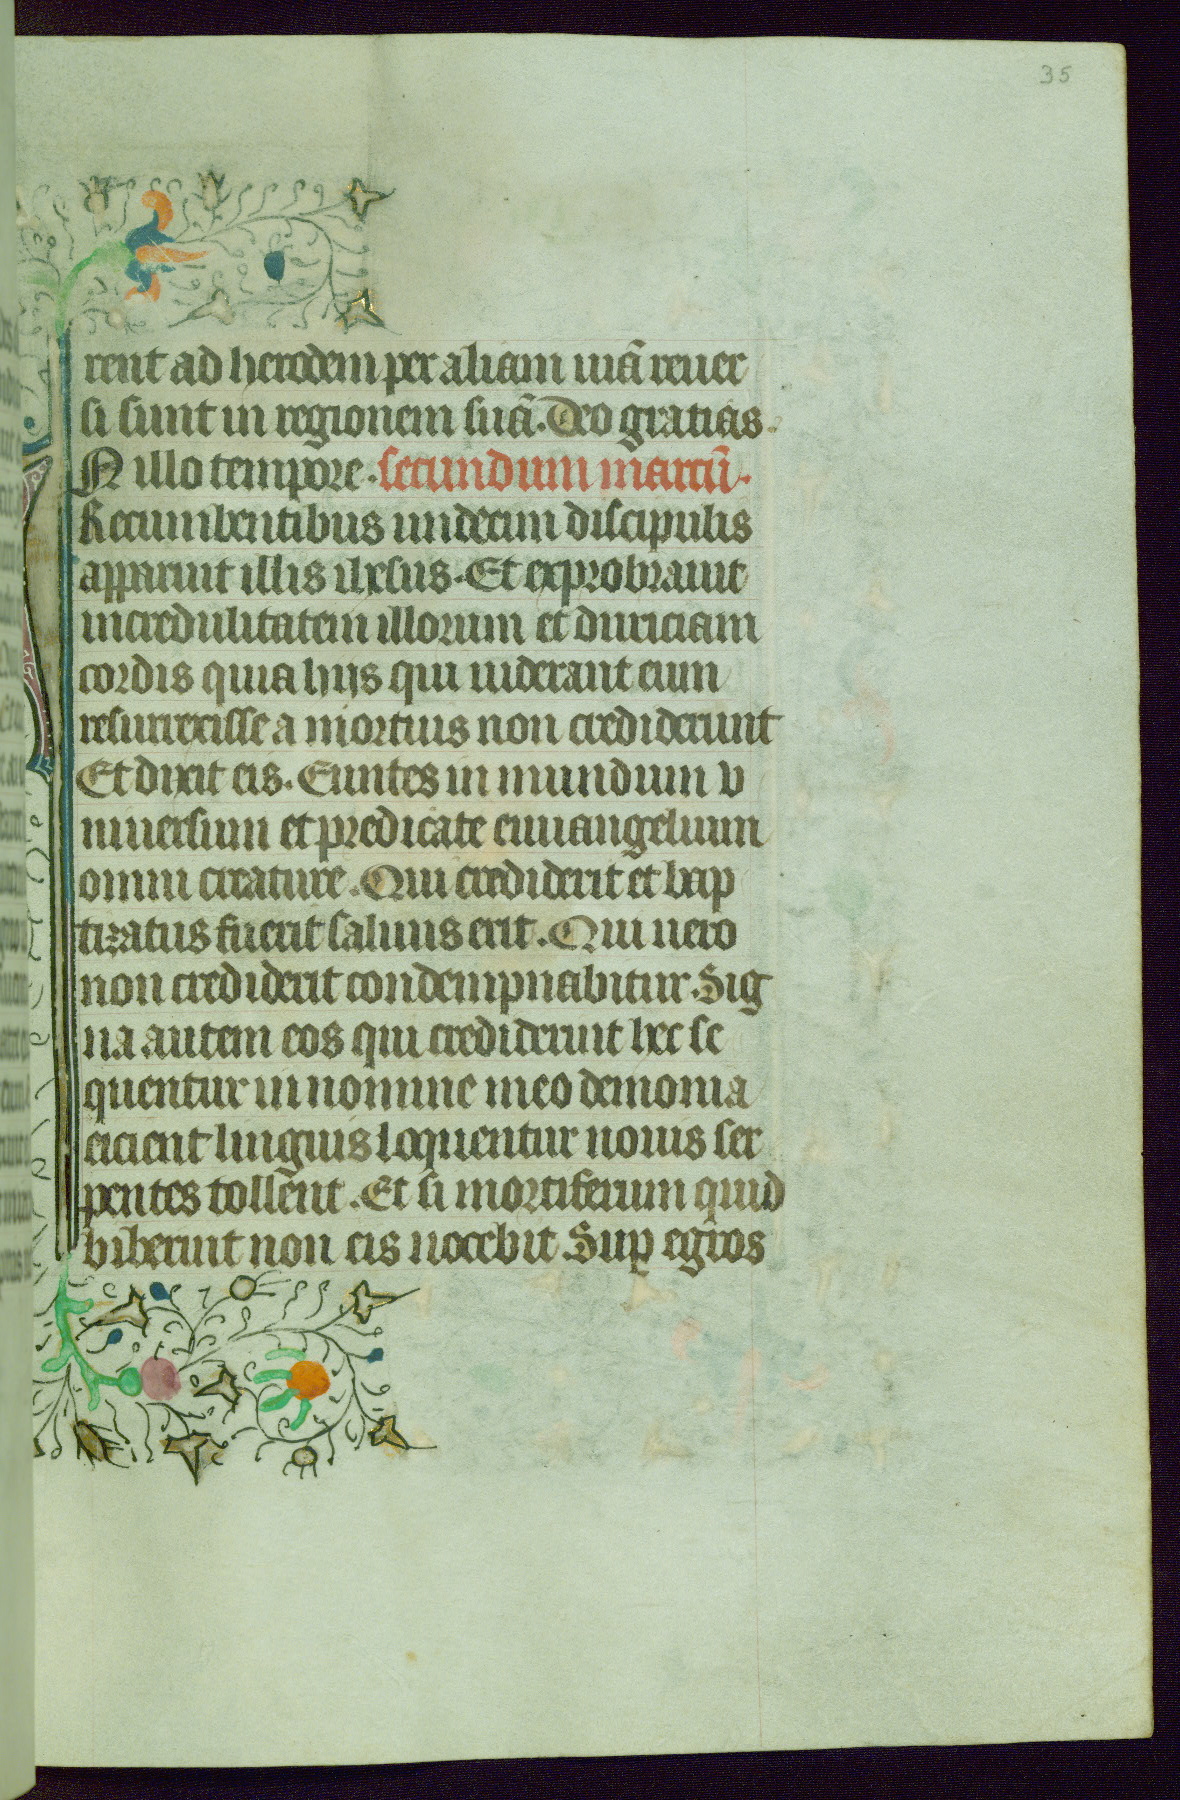 35
rent ad herodem per aliam uiā reuer
si sunt in regionem suā. Deo gratias.
N illo tempore. secundum marcū.
Recumbentibus undecim discipulis
apparuit illis ihesus. Et exprobrauit
incredulitatem illorum et duriciam
cordis quia hijs qui uiderant eum
resurrexisse a mortuis non crediderunt
Et dixit eis. Euntes in mundum v
niuersum et predicate euuangelium
omni creature. Qui crediderit et bap
tizatus fuerit saluus erit. Qui uero
non crediderit condempnabitur. Sig
na autem eos qui crediderint hec se
quentur in nomine meo demonia
eicient linguis loquentur nouis ser
pentes tollent. Et si mortiferum quid
biberint non eis nocebit Sup egros